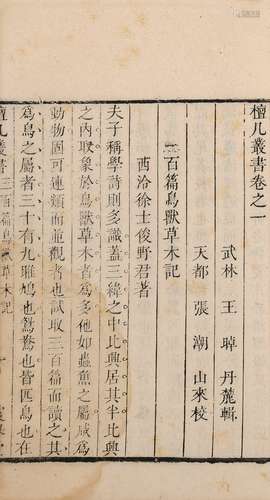 檀几叢書卷之一
武林 王晫 丹麓輯
天都 張潮 山來校
三百篇鳥獸草木記
西泠徐士俊野君著
夫子稱學詩則多識蓋三緯之中比興居其半比興
之內取象於鳥獸草木者為多他如蟲魚之屬咸為
動物固可連類而並觀者也試取三百篇而讀之其
為鳥之屬者三十有九雎鳩也鴛鴦也皆匹鳥也在
檀几叢書 三百篇鳥獸草木記 一